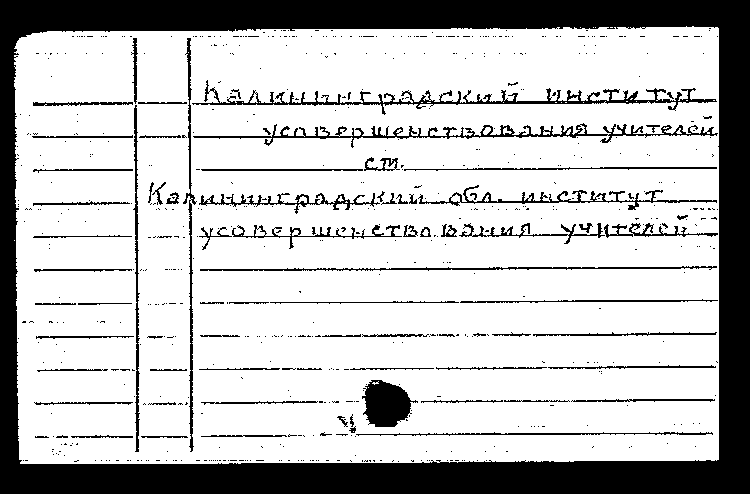 Калининградский институт
усовершенствования учителей
см.
Калининградский обл. институт
усовершенствования учителей